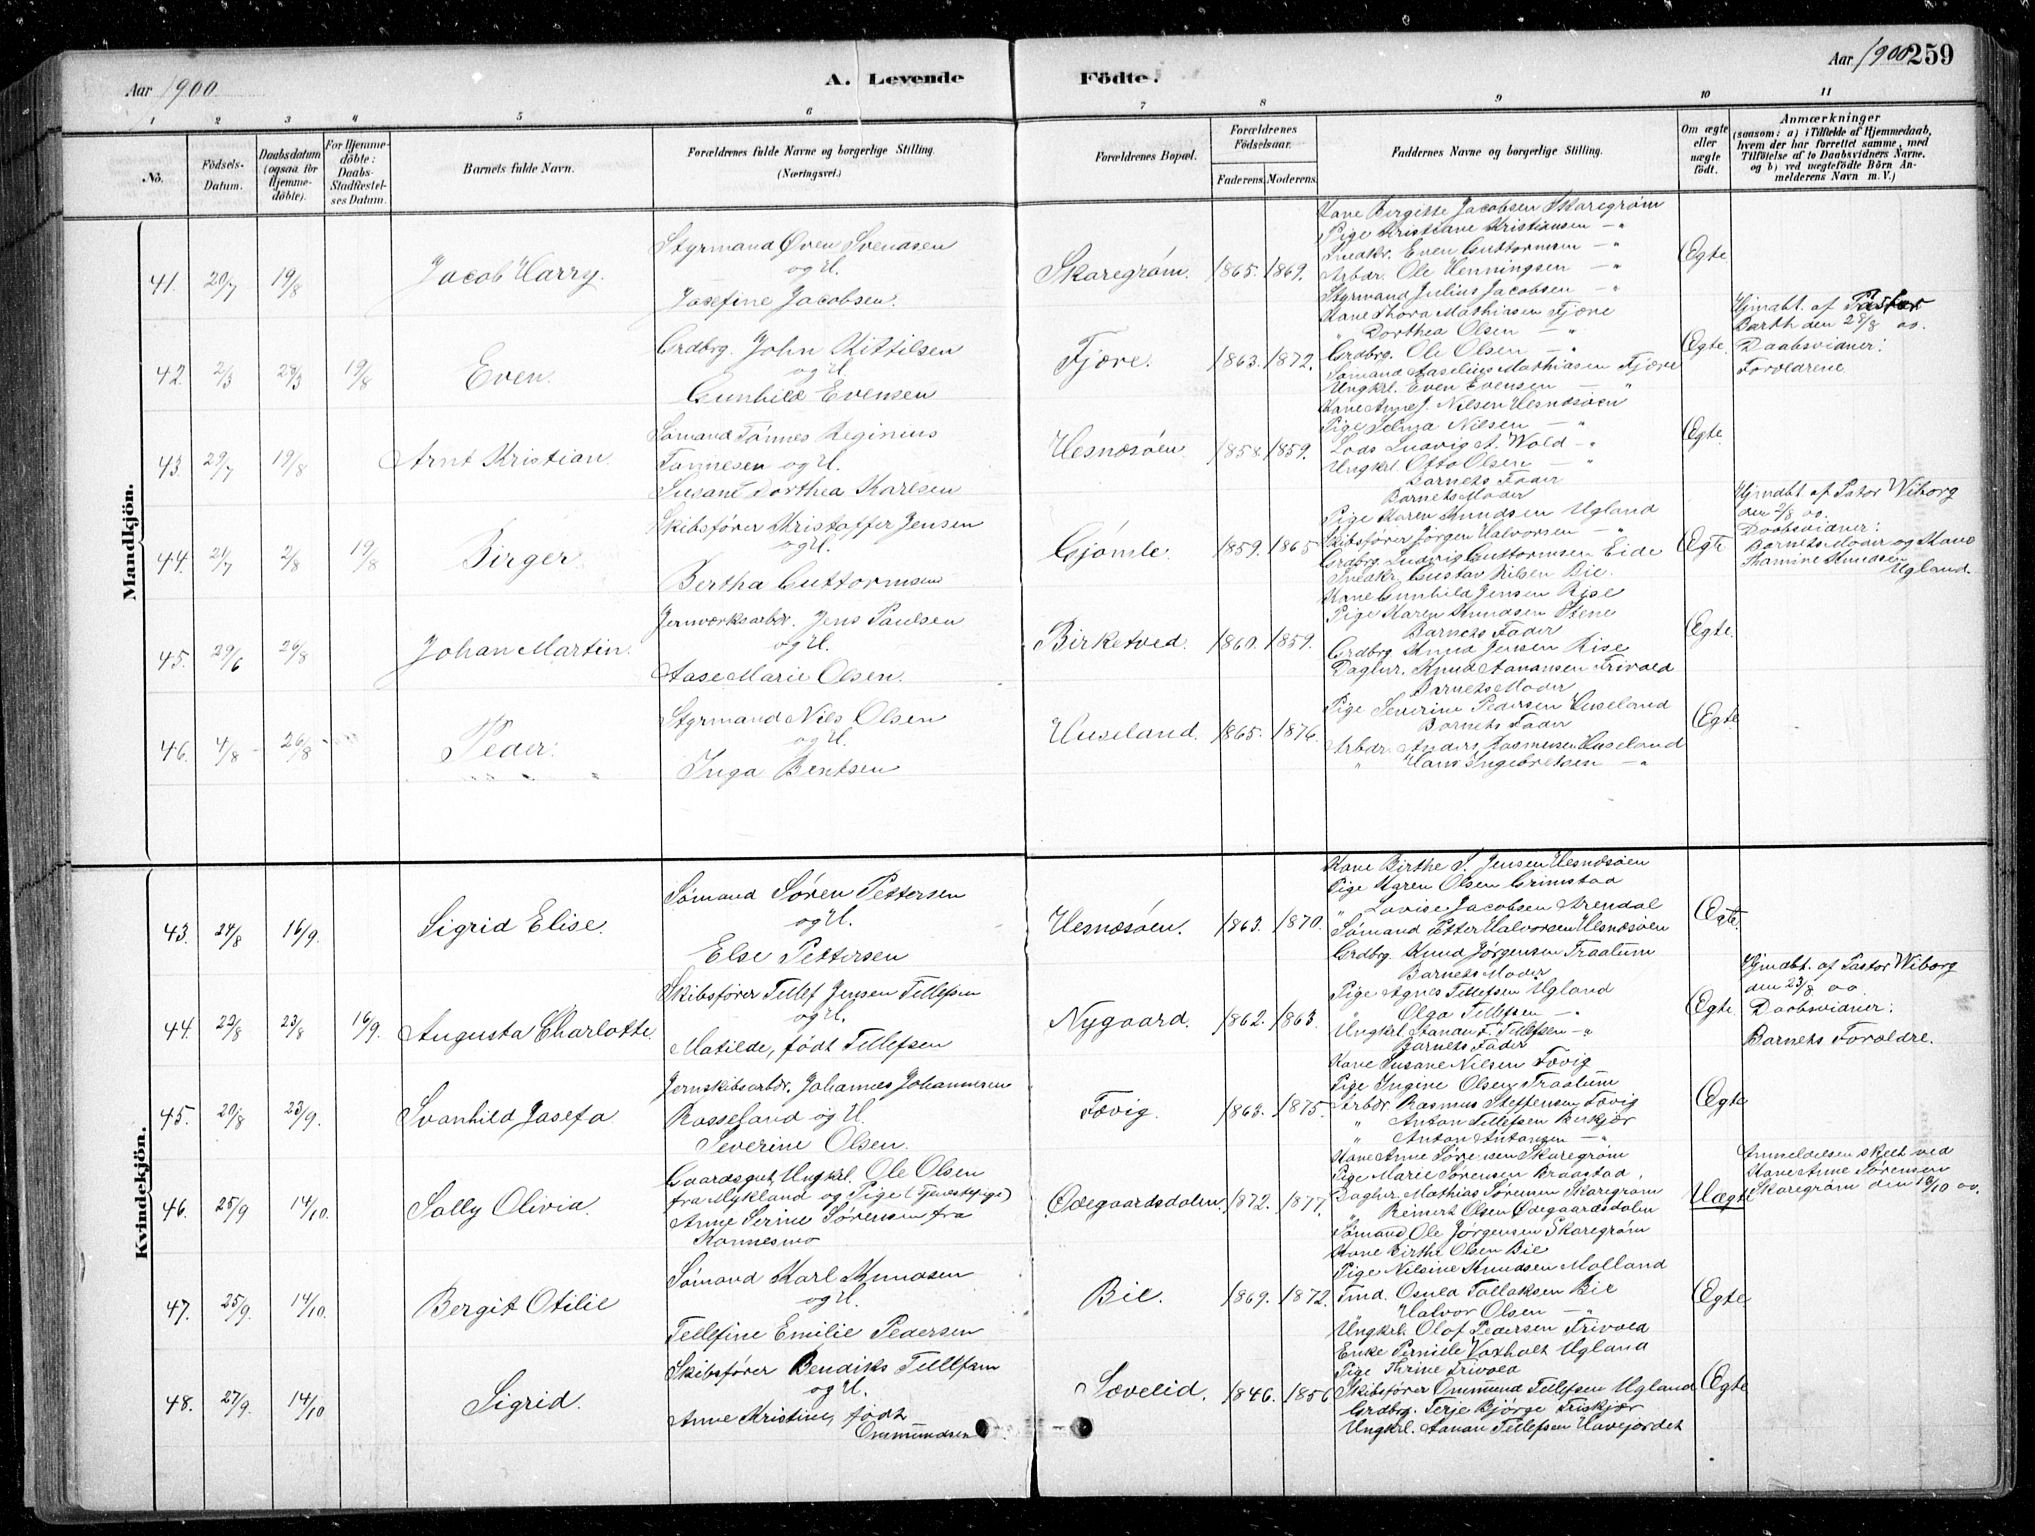 Aar 1900.
A. Levende
Födte.
Aar 1900
259
1 2 3 4 5 6 7 8 9 10 11
No.
Födsels-Datum.
Daabsdatum (ogsaa for Hjemme-döbte).
For Hjemme-döbte: Daabs-Stadfæstel-ses Datum.
Barnets fulde Navn.
Forældrenes fulde Navne og borgerlige Stilling. (Næringsvei.)
Forældrenes Bopæl.
Forældrenes Födselsaar.
Faderens. Moderens.
Faddernes Navne og borgerlige Stilling.
Om ægte eller uægte födt.
Anmærkninger
(saasom: a) i Tilfælde af Hjemmedaab, hvem der har forrettet samme, med Tilföielse af to Daabsvidners Navne. og b) ved uægtefödte Börn Anmelderens Navn m. V.)
Mandkjön.
41. 20/7 19/8 Jacob Harry.
Styrmand Øven Svendsen
og H.
Josefine Jacobsen.
Skaregrøm. 1865. 1869.
Kone Birgitte Jacobsen Skaregrøm
Pige Kristiane Kristiansen — "
Snedkr. Even Guttormsen — "
Arbdr. Ole Henningsen — "
Styrmand Julius Jacobsen — "
Ægte
42. 2/3 28/3 19/8 Even.
Grdbrg. John Kittilsen
og H.
Gunhild Evensen
Fjære. 1863. 1872.
Kone Thora Mathiasen Fjære
" Dorthea Olsen — "
Grdbrg. Ole Olsen — "
Sømand Aaselius Mathiasen Fjære
Ungkrl. Even Evensen — "
Ægte.
Hjmdbt. af Pastor
Barth den 28/3 00.
Daabsvidner:
Forældrene
43 29/7 19/8 Arnt Kristian.
Sømand Tønnes Reginius
Tønnesen og H.
Susane Dorthea Karlsen
Hesnæsøen 1858. 1859.
Kone Anne J. Nilsen Hesnæsøen
Pige Selma Nilsen — "
Lods Ludvig A. Wold — "
Ungkrl. Otto Olsen — "
Barnets Fader
Barnets Moder
Ægte.
44. 21/7 2/8 19/8 Birger.
Skibsfører Kristoffer Jensen
og H.
Bertha Guttormsen
Gjømle. 1859. 1865
Pige Karen Knudsen Ugland
Skibsfører Jørgen Halvorsen — "
Grdbrg. Ludvig Guttormsen Eide
Snedkr. Gustav Nilsen Bie.
Kone Gunhild Jensen Rise
Ægte
Hjmdbt. af Pator Wiborg
den 2/8 00.
Daabsvidner:
Barnets Moder og Kone
Thomine Knudsen
Ugland.
45. 29/6 26/8 Johan Martin.
Jernværksarbdr. Jens Paulsen
og H.
Aase Marie Olsen.
Birketved. 1860. 1859.
Pige Karen Knudsen Stene
Barnets Fader
Grdbrg. Knud Jensen Rise
Daglnr. Knud Aanansen Frivold
Barnets Moder
Ægte.
46. 4/8 26/8 Peder.
Styrmand Nils Olsen
og H.
Inga Bentsen
Huseland. 1865. 1876.
Pige Severine Pedersen Huseland
Barnets Fader
Arbdr. Anders Rasmussen Huseland
" Hans Ingebretsen — "
Ægte
Kvindekjön.
43. 24/8 16/9. Sigrid Elise.
Sømand Søren Pettersen
og H.
Else Pettersen
Hesnæsøen. 1863. 1870.
Kone Birthe S. Jensen Hesnæsøen
Pige Karen Olsen Grimstad
" Lovise Jacobsen Arendal
Sømand Petter Halvorsen Hesnæsøen
Grdbrg. Knud Jørgensen Traalum
Barnets Moder
Ægte.
44. 22/8 23/8 16/9. Augusta Charlotte.
Skibsfører Tellef Jensen Tellefsen
og H.
Matilde, født Tellefsen
Nygaard. 1862. 1863.
Pige Agnes Tellefsen Ugland
" Olga Tellefsen — "
Ungkrl. Aanan F. Tellefsen — "
Barnets Fader
Ægte
Hjmdbt. af Pastor Wiborg
den 23/8 00.
Daabsvidner:
Barnets Foroldre.
45. 20/8 23/9. Svanhild Josefa
Jernskibsarbdr. Johannes Johannesen
Rosseland og H.
Severine Olsen.
Fævig. 1863. 1875.
Kone Susane Nilsen Fævig
Pige Ingine Olsen Traalum
Arbdr Rasmus Steffensen Fævig
" Anton Tellefsen Birkjær
" Anton Antonsen — "
Ægte
46. 25/9 14/10. Sally Olivia.
Gaardsgut, Ungkrl. Ole Olsen
fra Mykland og Pige (Tjenestepige)
Anne Serine Sørensen fra
Kannesmo
Ødegaardsdalen. 1872. 1877.
Kone Anne Sørensen Skaregrøm
Pige Marie Sørensen Braastad
Daglnr. Mathias Sørensen Skaregrøm
" Reinert Olsen Ødegaardsdalen
Sømand Ole Jørgensen Skaregrøm
Uægte
Anmeldelsen skeet ved
Kone Anne Sørensen
Skaregrøm den 13/10 00.
47. 25/9. 14/10. Bergit Otilie
Sømand Karl Knudsen
og H.
Tellefine Emilie Pedersen
Bie. 1869. 1872.
Kone Birthe Olsen Bie
Pige Nilsine Knudsen Molland
Tmd. Osuld Tallaksen Bie
Halvor Olsen — "
Ungkrl. Olaf Pedersen Frivold
Ægte
48. 27/9. 14/10 Sigrid.
Skibsfører Bendiks Tellefsen
og H.
Anne Kristine, født
Ommundsen
Sævelid. 1846. 1856
Enke Pernille Voxholt Ugland
Pige Thrine Frivold
Skibsfører Ommund Tellefsen Ugland
Grdbrg. Terje Bjørge Friskjær
Ungkrl. Aanan Tellefsen Havejordet
Ægte